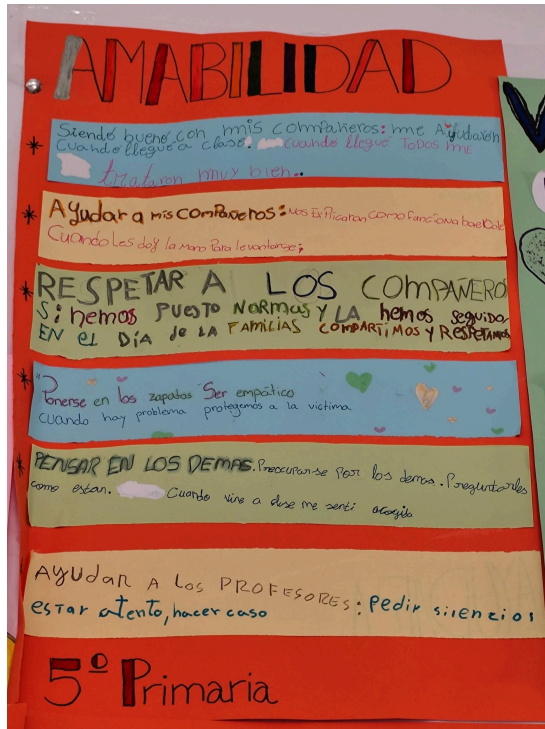 AMABILIDAD
* Siendo bueno con mis compañeros: me Ayudaron
Cuando llegue a clase. Cuando llegue TODOS me
trataron muy bien..
* Ayudar a mis compañeros: Nos Explicaron como funcionaba el cole
Cuando les doy la mano Para levantarse;
* RESPETAR A LOS COMPAÑERO
Si hemos PUESTO NORMAS Y LA hemos seguido
EN EL DÍA de LA FAMILIAS COMPARTIMOS Y RESPETAMOS
* Ponerse en los zapatos Ser empático
cuando hay problema protegemos a la victima
* PENSAR EN LOS DEMAS. Preocuparse Por los demas. Preguntarles
como estan. Cuando vine a clase me senti acogida
AYUdAR A Los PROFESORES: Pedir silencios
estar atento, hacer caso
5º Primaria